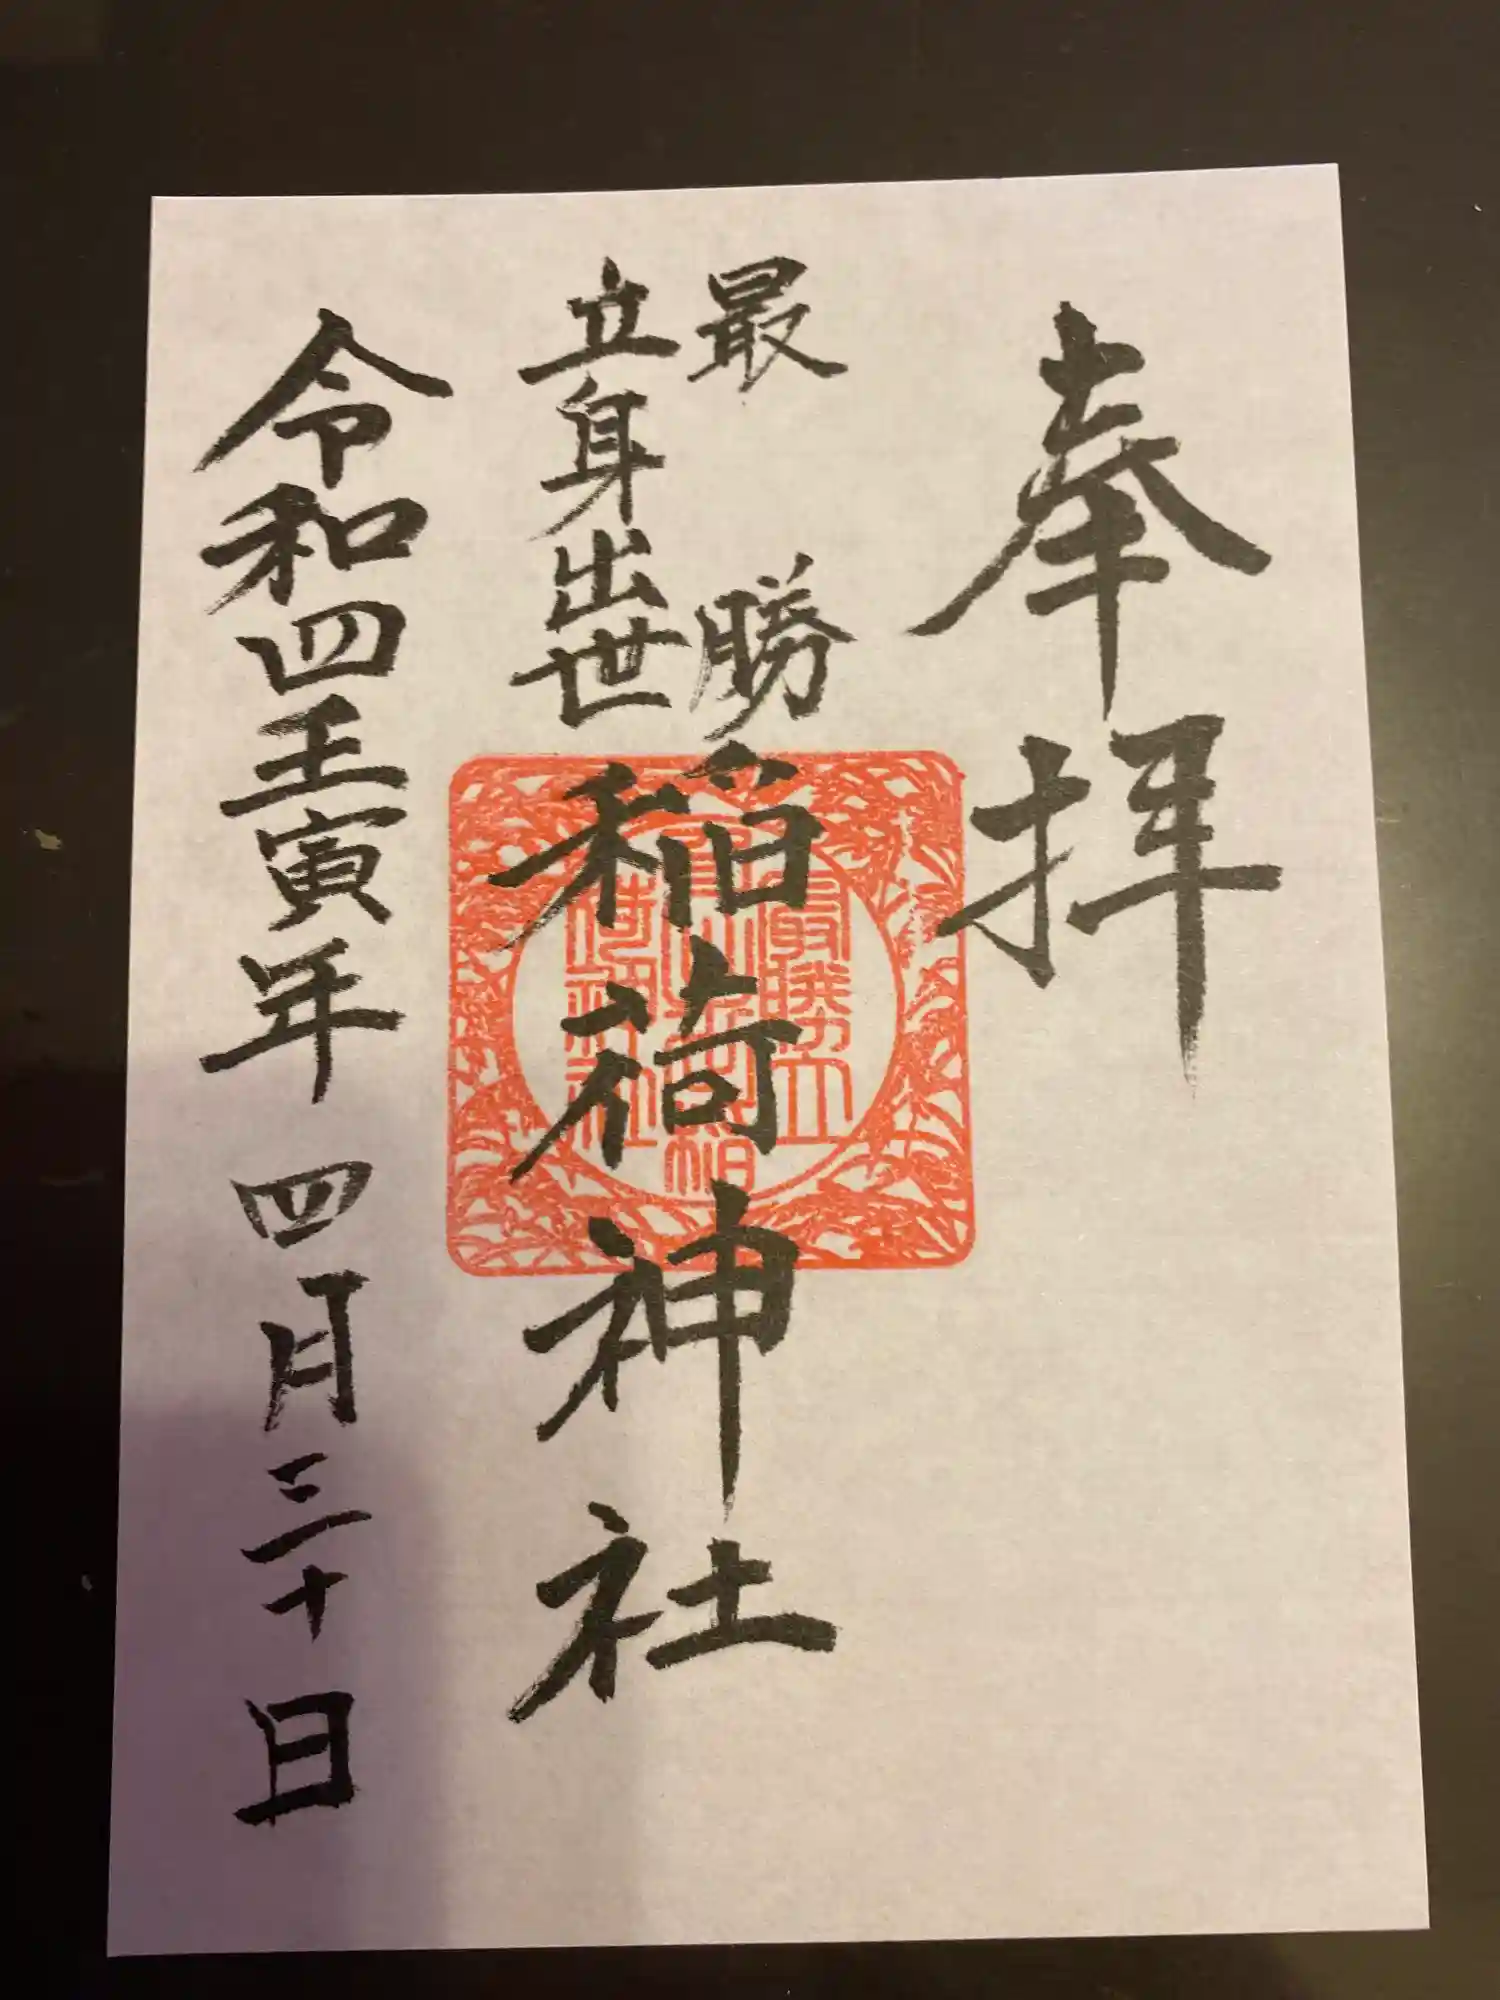 奉拝
最勝
立身出世
稲荷神社
令和四壬寅年四月三十日
最勝立
身出世稲
荷神社